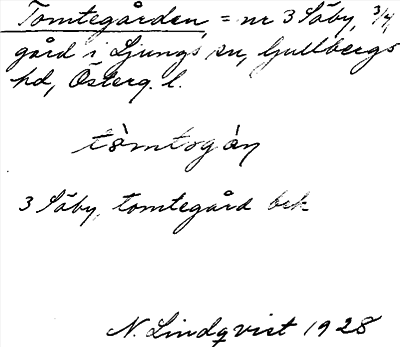 Tomtegården, = nr 3 Säby, 3/4
gård i Ljungs sn, Gullbergs
hd, Österg. l.
tòmtogán
3 Säby, tomtegård bek
N. Lindqvist 1928